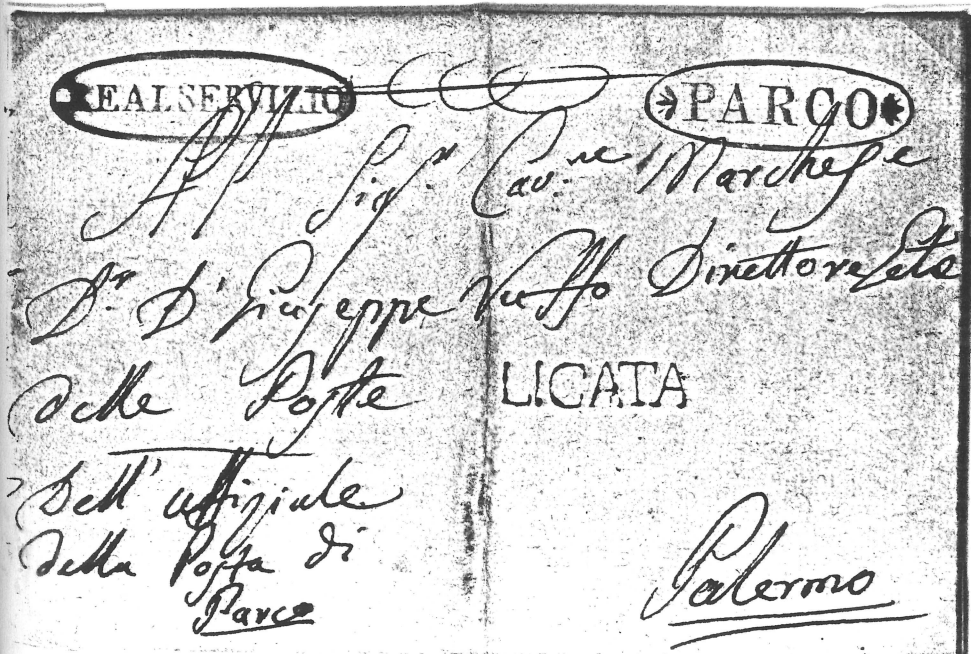 REAL SERVIZIO PARCO
All Sig.r Cav.re Marchese
D.r D. Giuseppe Ruffo Direttore
delle Poste
LICATA
Dell' uffiziale
della Posta di
Parco
Palermo